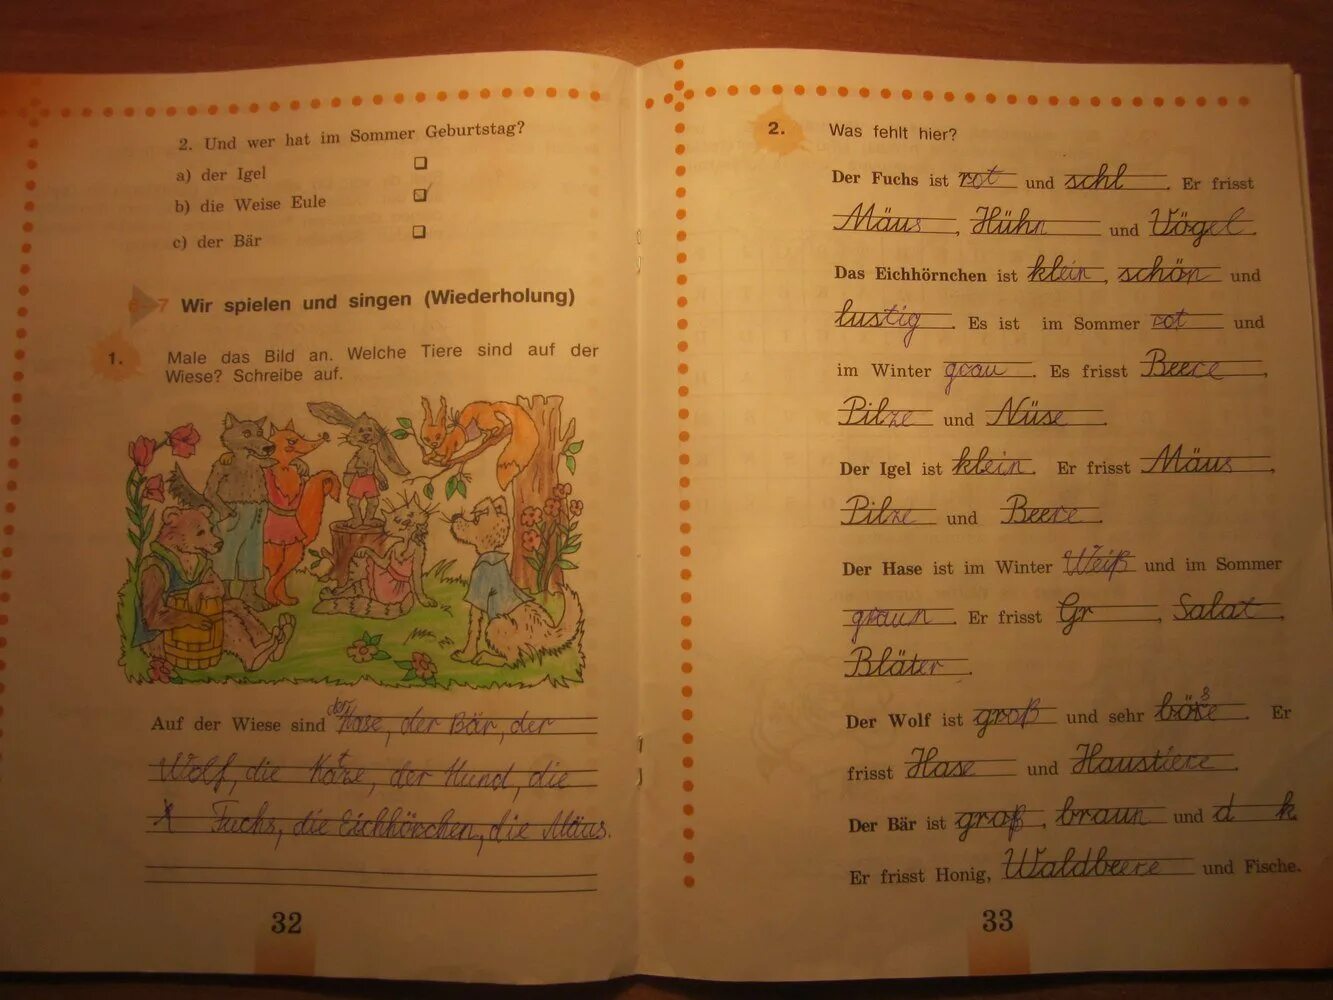 2. Und wer hat im Sommer Geburtstag?
a) der Igel
b) die Weise Eule
c) der Bär
6–7 Wir spielen und singen (Wiederholung)
1. Male das Bild an. Welche Tiere sind auf der
Wiese? Schreibe auf.
Auf der Wiese sind der Hase, der Bär, der
Wolf, die Katze, der Hund, die
Fuchs, die Eichhörchen, die Mäus.
32
2. Was fehlt hier?
Der Fuchs ist rot und schl. Er frisst
Mäus, Hühn und Vögel.
Das Eichhörnchen ist klein, schön und
lustig. Es ist im Sommer rot und
im Winter grau. Es frisst Beere,
Pilze und Nüse.
Der Igel ist klein. Er frisst Mäus,
Pilze und Beere.
Der Hase ist im Winter Weiß und im Sommer
graun. Er frisst Gr, Salat,
Bläter.
Der Wolf ist groß und sehr böse. Er
frisst Hase und Haustiere.
Der Bär ist groß, braun und d k.
Er frisst Honig, Waldbeere und Fische.
33